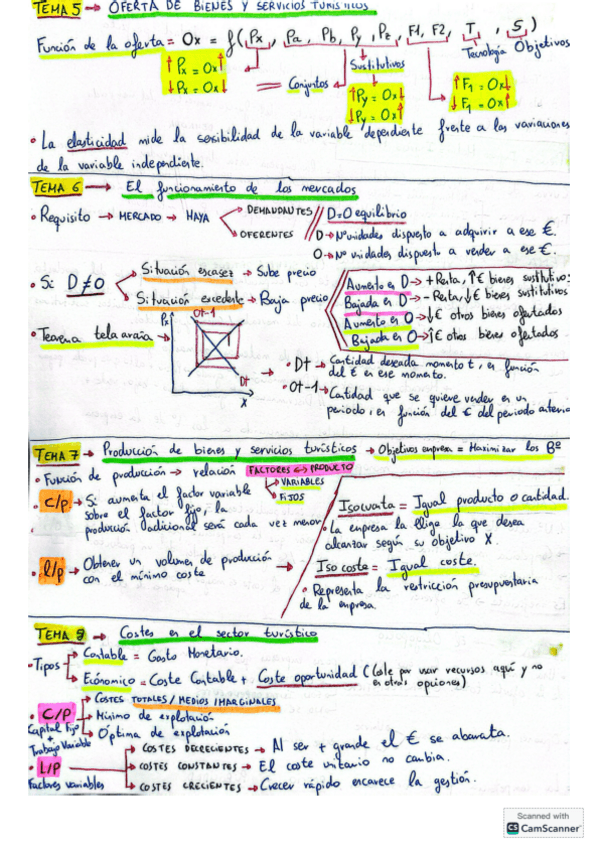 TEMA 5 → OFERTA DE BIENES Y SERVICIOS TURÍSTICOS
Función de la oferta = Ox = f(Px, Pa, Pb, Py, Pz, F1, F2, T, S)
Tecnología Objetivos
↑Px = Ox↑
↓Px = Ox↓
= Conjuntos
Sustitutivos
↑Py = Ox↓
↓Py = Ox↑
↑F1 = Ox↓
↓F1 = Ox↑
• La elasticidad mide la sensibilidad de la variable dependiente frente a las variaciones
de la variable independiente.
TEMA 6 → El funcionamiento de los mercados
• Requisito → MERCADO → HAYA
DEMANDANTES
OFERENTES
D=O equilibrio
D → Nº unidades dispuesto a adquirir a ese €.
O → Nº unidades dispuesto a vender a ese €.
• Si D≠O
Situación escasez → Sube precio
Situación excedente → Baja precio
Aumento en D → + Renta, ↑€ bienes sustitutivos
Bajada en D → - Renta, ↓€ bienes sustitutivos
Aumento en O → ↓€ otros bienes ofertados
Bajada en O → ↑€ otros bienes ofertados.
• Teorema telaraña →
Px
Ot-1
Dt
X
• Dt → Cantidad deseada momento t, en función
del € en ese momento.
• Ot-1 → Cantidad que se quiere vender en un
periodo, en función del € del periodo anterior
TEMA 7 → Producción de bienes y servicios turísticos → Objetivos empresa = Maximizar los Bº
• Función de producción → relación FACTORES ↔ PRODUCTO
VARIABLES
FIJOS
• C/p → Si aumenta el factor variable
sobre el factor fijo, la
producción adicional será cada vez menor
Isocuata = Igual producto o cantidad.
• La empresa la elige la que desea
alcanzar según su objetivo X.
• l/p → Obtener un volumen de producción
con el mínimo coste
Isocoste = Igual coste.
• Representa la restricción presupuestaria
de la empresa.
TEMA 8 → Costes en el sector turístico
• Tipos
Contable = Gasto Monetario.
Económico = Coste Contable + Coste oportunidad (Coste por usar recursos aquí y no
en otras opciones)
• C/P
Capital Fijo
+
Trabajo Variable
COSTES TOTALES / MEDIOS / MARGINALES
Mínimo de explotación
Óptima de explotación
• L/P
Factores variables
COSTES DECRECIENTES → Al ser + grande el € se abarata.
COSTES CONSTANTES → El coste unitario no cambia.
COSTES CRECIENTES → Crecer rápido encarece la gestión.
Scanned with
CS CamScanner